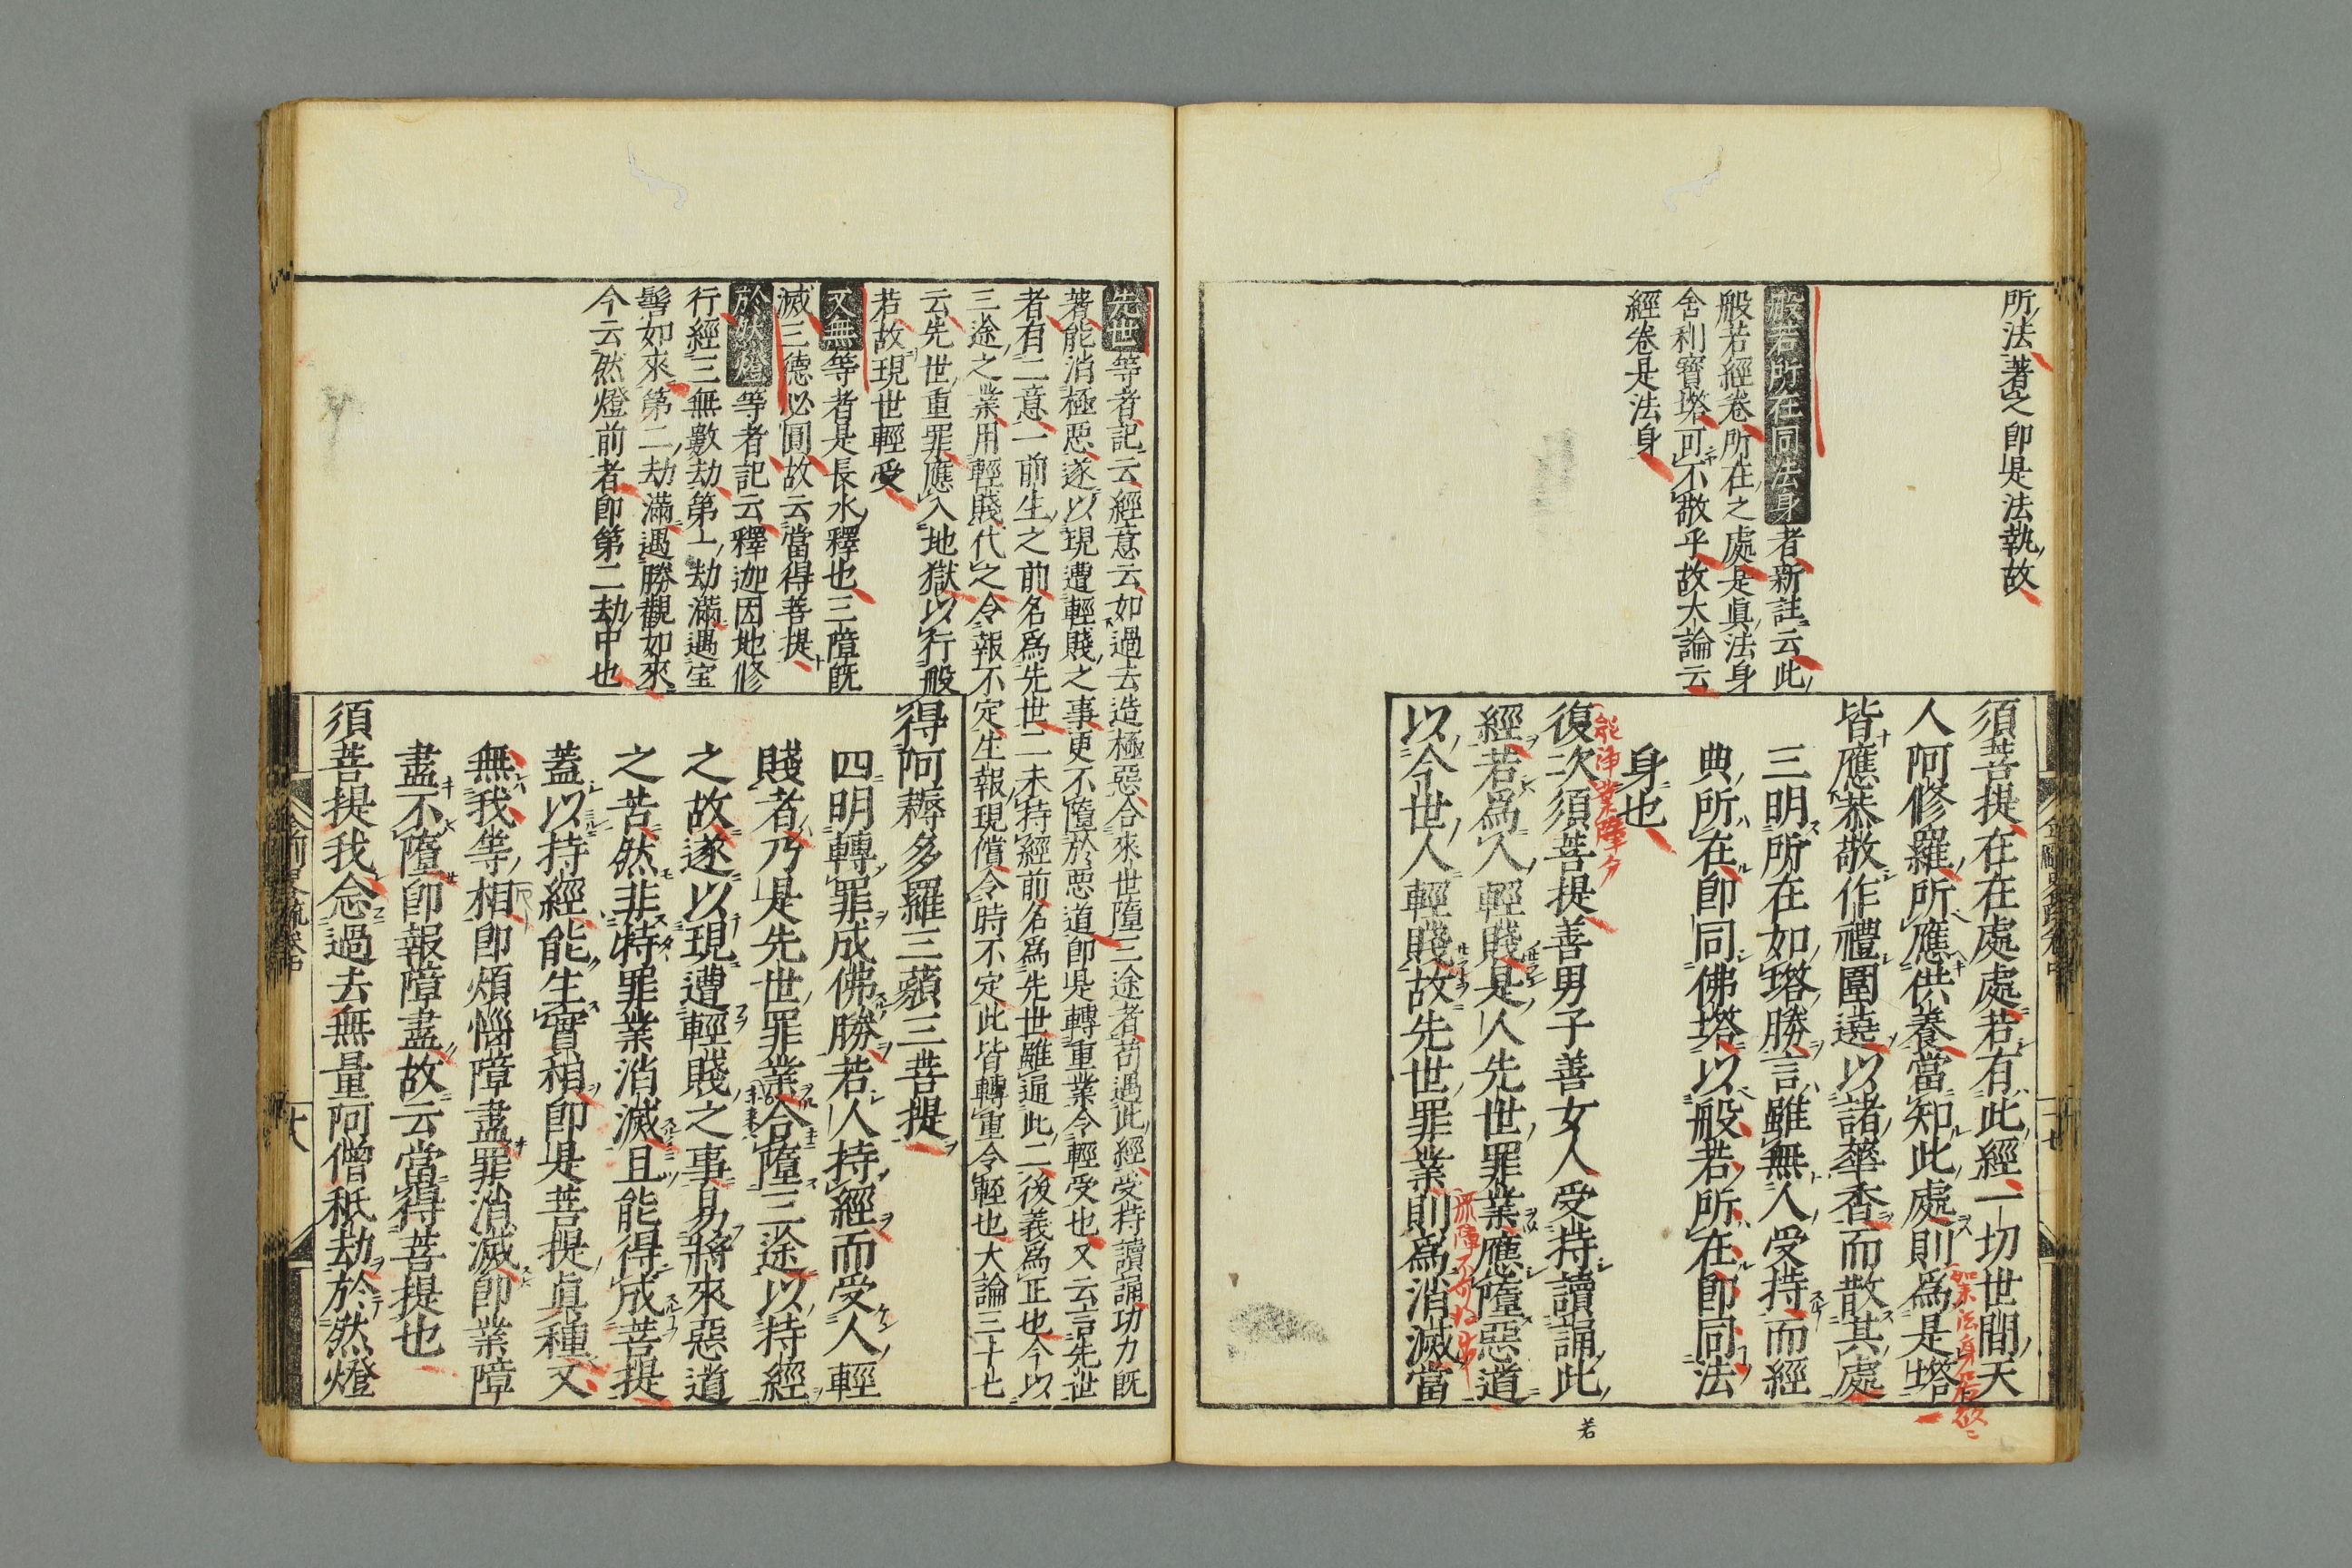 所法著之即是法執故
般若所在同法身者新註云此
般若經卷所在之處是眞法身
舍利寶塔可不敬乎故大論云
經卷是法身
須菩提在在處處若有此經一切世間天
人阿修羅所應供養當知此處則爲是塔
皆應恭敬作禮圍遶以諸華香而散其處
三明所在如塔勝言雖無人受持而經
典所在即同佛塔以般若所在即同法
身也
復次須菩提善男子善女人受持讀誦此
經若爲人輕賤是人先世罪業應墮惡道
以今世人輕賤故先世罪業則爲消滅當
若
先世等者記云經意云如過去造極惡合來世墮三途者苟遇此經受持讀誦功力既
著能消極惡遂以現遭輕賤之事更不墮於惡道即是轉重業令輕受也又云言先世
者有二意一前生之前名爲先世二未持經前名爲先世雖通此二後義爲正也今以
三途之業用輕賤代之令報不定生報現償令時不定此皆轉重令輕也大論三十七
云先世重罪應入地獄以行般
若故現世輕受
又無等者是長水釋也三障既
滅三德必圓故云當得菩提
於然燈等者記云釋迦因地修
行經三無數劫第一劫滿遇宝
髻如來第二劫滿遇勝觀如來
今云然燈前者即第二劫中也
得阿耨多羅三藐三菩提
四明轉罪成佛勝若人持經而受人輕
賤者乃是先世罪業合墮三途以持經
之故遂以現遭輕賤之事易將來惡道
之苦然非特罪業消滅且能得成菩提
蓋以持經能生實相即是菩提眞種又
無我等相即煩惱障盡罪消滅即業障
盡不墮即報障盡故云當得菩提也
須菩提我念過去無量阿僧祇劫於然燈